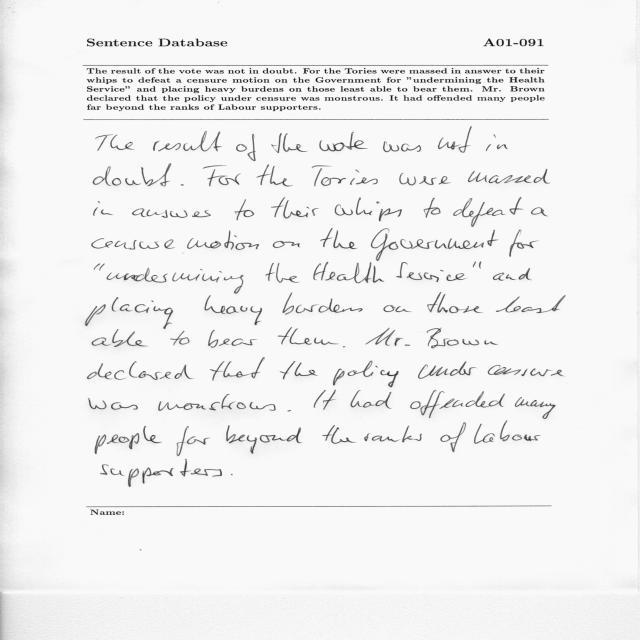 Sentence Database A01-091
The result of the vote was not in doubt. For the Tories were massed in answer to their
whips to defeat a censure motion on the Government for "undermining the Health
Service" and placing heavy burdens on those least able to bear them. Mr. Brown
declared that the policy under censure was monstrous. It had offended many people
far beyond the ranks of Labour supporters.
The result of the vote was not in
doubt. For the Tories were massed
in answer to their whips to defeat a
censure motion on the Government for
"undermining the Health Service" and
placing heavy burdens on those least
able to bear them. Mr. Brown
declared that the policy under censure
was monstrous. It had offended many
people far beyond the ranks of Labour
supporters.
Name: